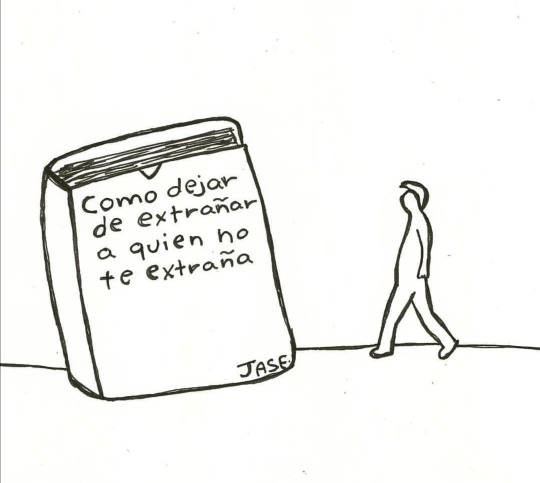 Como dejar
de extrañar
a quien no
te extraña
JASE.